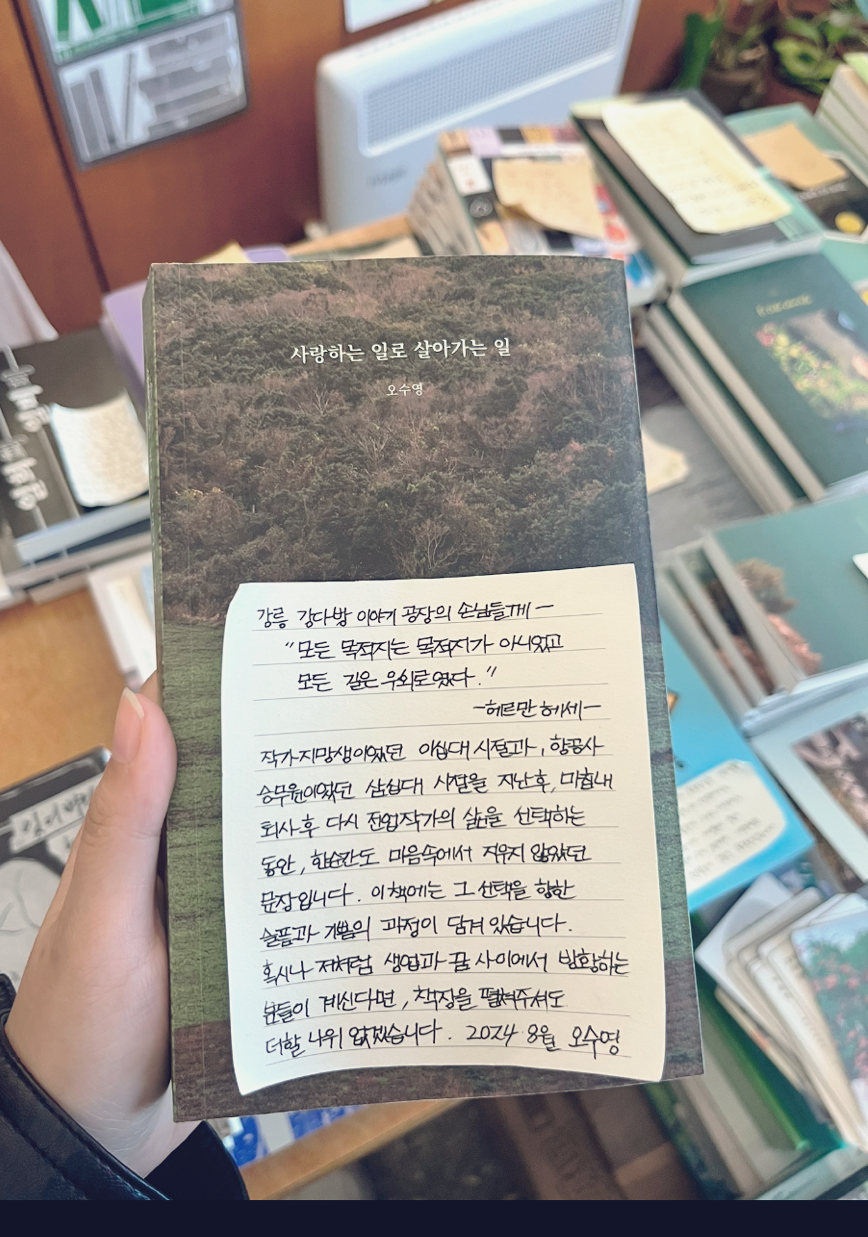 사랑하는 일로 살아가는 일
오수영
강릉 강다방 이야기 공장의 손님들께 —
“모든 목적지는 목적지가 아니었고
모든 길은 우회로였다.”
—헤르만 헤세—
작가지망생이었던 이십대 시절과, 항공사
승무원이었던 삼십대 시절을 지난 후, 마흔내
퇴사 후 다시 전업작가의 삶을 선택하는
동안, 한순간도 마음속에서 지우지 않았던
문장입니다. 이 책에는 그 선택을 향한
슬픔과 기쁨의 과정이 담겨 있습니다.
혹시나 저처럼 생업과 꿈 사이에서 방황하는
분들이 계신다면, 책장을 펼쳐주셔도
더할 나위 없겠습니다. 2024 8월 오수영